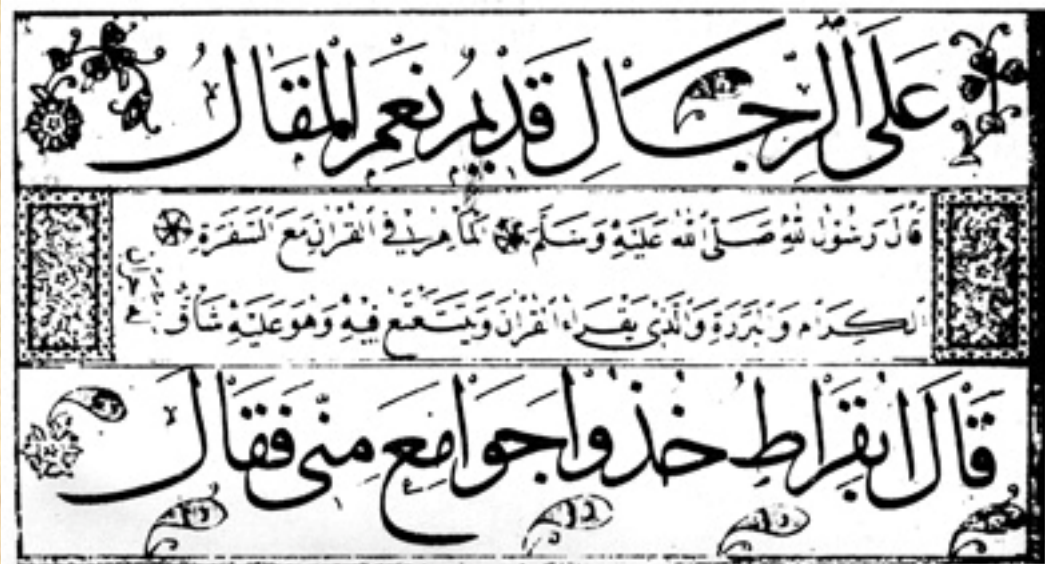 على الرجال قديم نعم المقال
قال رسول الله صلى الله عليه وسلم الماهر في القران مع السفرة
الكرام والبررة والذي يقراء القران ويتتعتع فيه وهو عليه شاق
قال ابقراط خذوا جوامع مني فقال